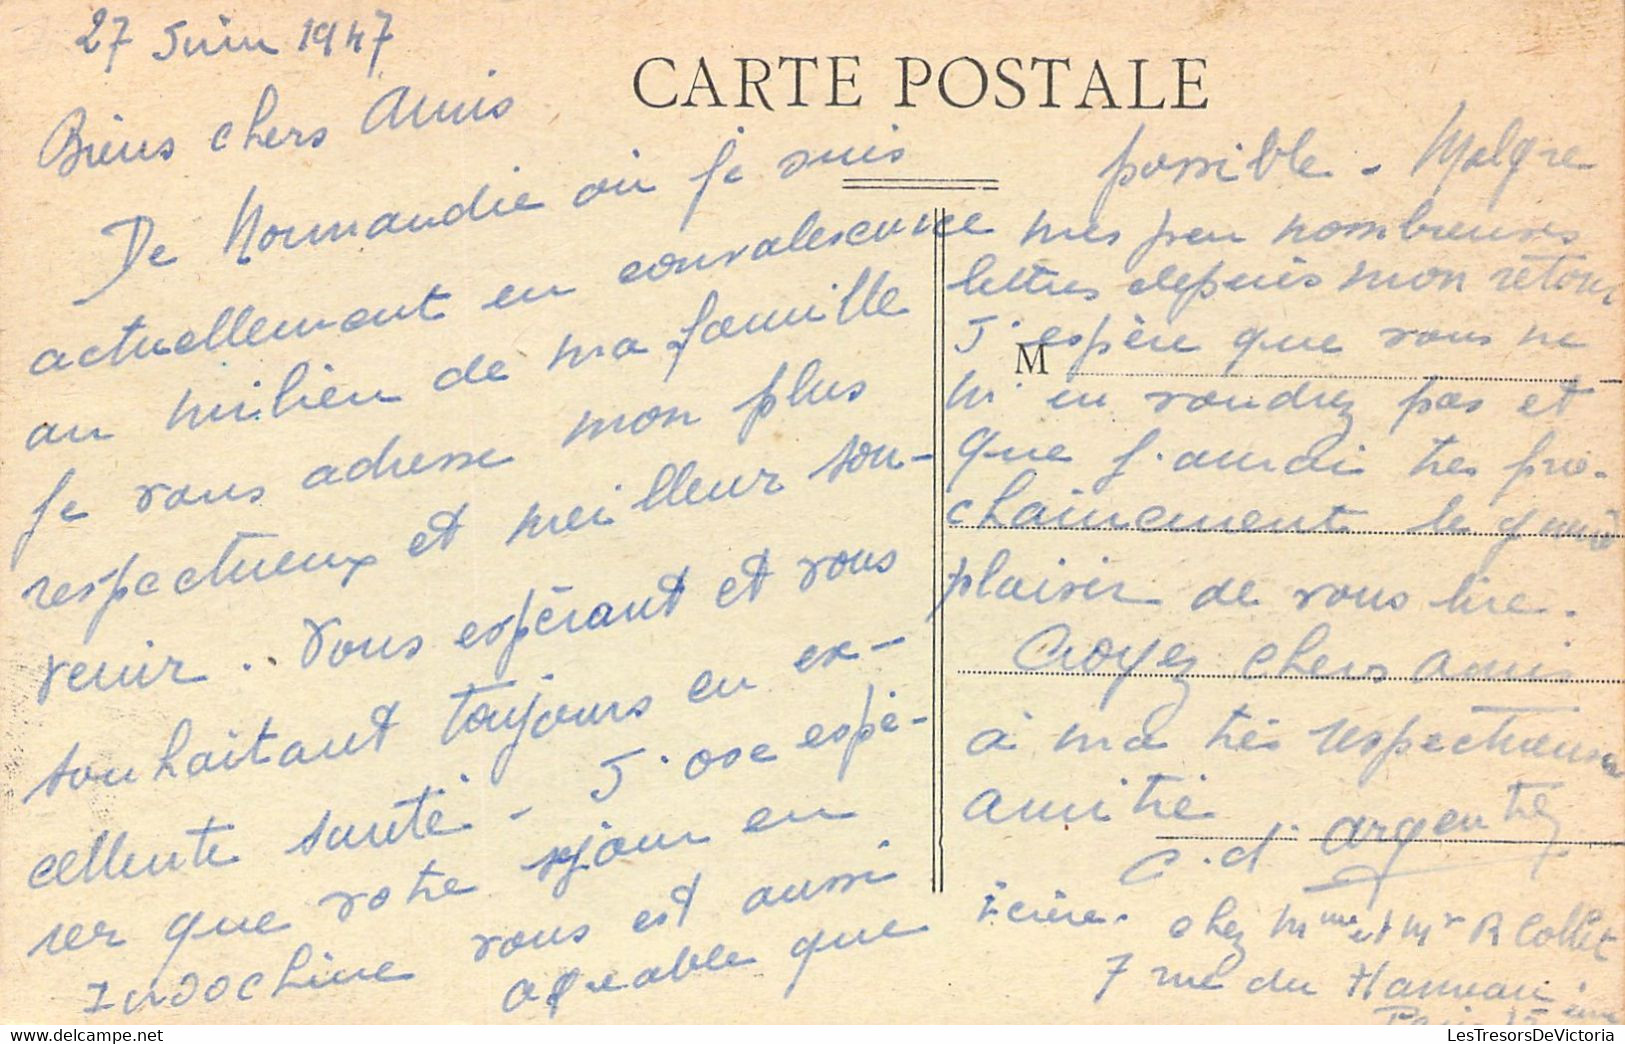 27 Juin 1947
CARTE POSTALE
Biens chers Amis
De Normandie où je suis
actuellement en convalescence
au milieu de ma famille
je vous adresse mon plus
respectueux et meilleur sou-
venir.. Vous espérant et vous
souhaitant toujours en ex-
cellente santé - J'ose espé-
rer que votre séjour en
Indochine vous est aussi
agréable que
possible - Malgré
mes peu nombreuses
lettres depuis mon retour
J'espère que vous ne
M
m'en voudrez pas et
que j'aurai très pro-
chainement le grand
plaisir de vous lire.
Croyez chers amis
à ma très respectueuse
amitié
C. d'Argentré
chez Mme et Mr R Collet
7 rue du Hameau
Paris 15ème
LesTresorsDeVictoria
© LesTresorsDeVictoria